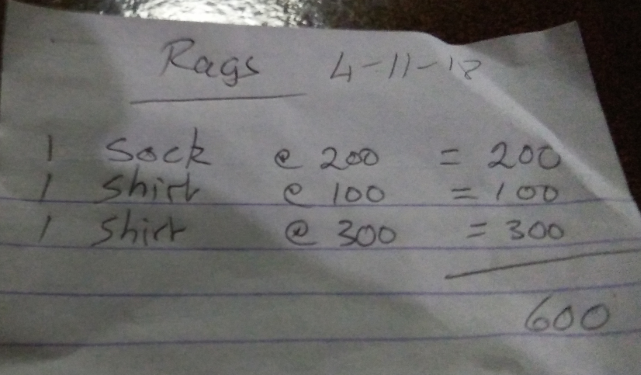 Rags 4-11-18
1 Sock @ 200 = 200
1 Shirt @ 100 = 100
1 Shirt @ 300 = 300
600